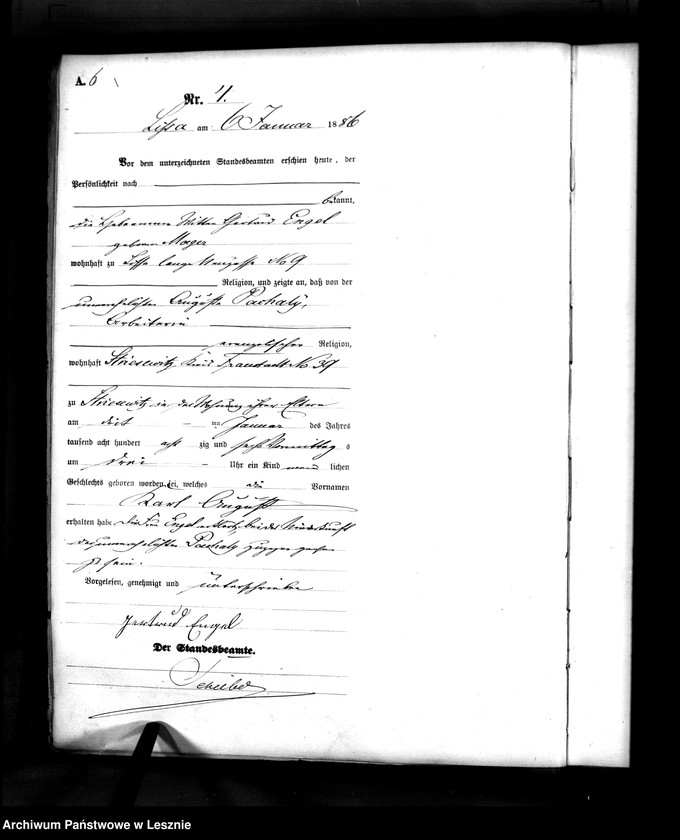 A. 6
Nr. 4.
Lissa am 6 Januar 1886
Vor dem unterzeichneten Standesbeamten erschien heute, der
Persönlichkeit nach
bekannt,
die Hebamme Wittwe Gertrud Engel
geborene Mager
wohnhaft zu Lissa lange No 9
Religion, und zeigte an, daß von der
unverehelichten Auguste Pachaly,
Arbeiterin
evangelischer Religion,
wohnhaft Striesewitz Kreis Fraustadt No 39
zu Striesewitz in der Wohnung ihrer Eltern
am ten Januar des Jahres
tausend acht hundert acht zig und sechs Vormittags
um drei Uhr ein Kind männlichen
Geschlechts geboren worden sei, welches die Vornamen
Karl August
erhalten habe. Die Frau Engel erklärte, bei der Niederkunft
der unverehelichten Pachaly zugegen gewesen
zu sein.
Vorgelesen, genehmigt und unterschrieben
Gertrud Engel
Der Standesbeamte.
Archiwum Państwowe w Lesznie